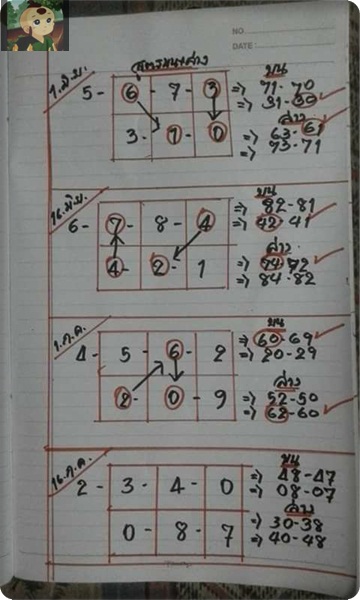 NO
DATE :
สูตรบนล่าง
1.มิ.ย.
บน
5 - 6 - 7 - 3 => 71-70
=> 31-30
ล่าง
3 - 1 - 0 => 63-61
=> 73-71
16.มิ.ย.
บน
6 - 7 - 8 - 4 => 82-81
=> 42-41
ล่าง
4 - 2 - 1 => 74-72
=> 84-82
1.ก.ค.
บน
4 - 5 - 6 - 2 => 60-69
=> 20-29
ล่าง
2 - 0 - 9 => 52-50
=> 62-60
16.ก.ค.
บน
2 - 3 - 4 - 0 => 48-47
=> 08-07
ล่าง
0 - 8 - 7 => 30-38
=> 40-48